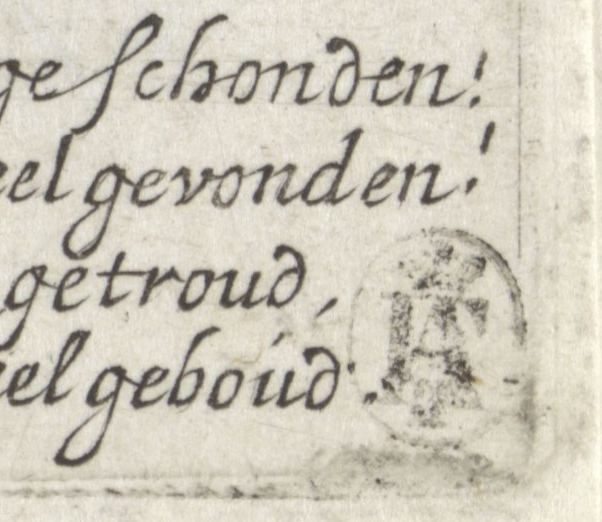 ge schonden!
eel gevonden!
getroud,
eel geboud.